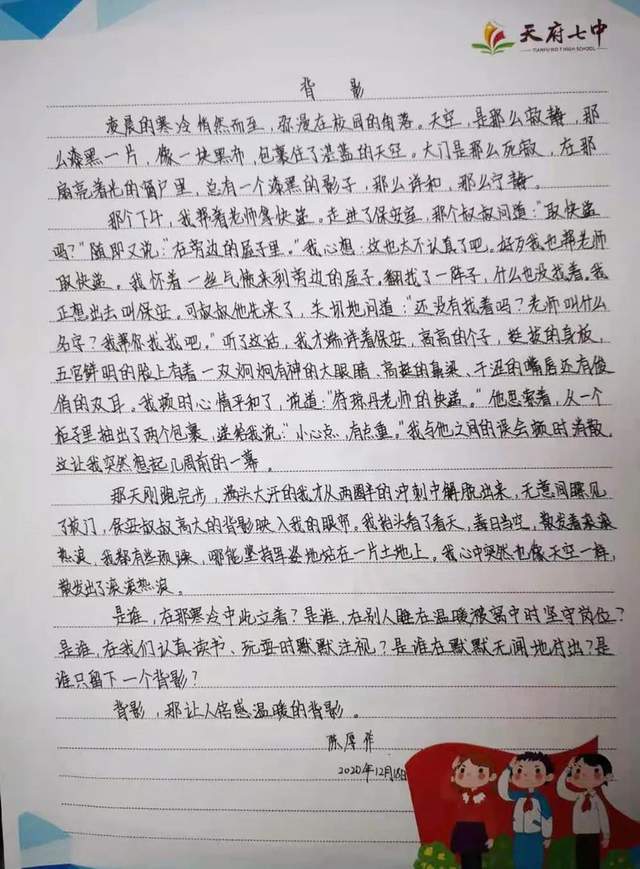 天府七中
TIANFU NO.7 HIGH SCHOOL
背影
凌晨的寒冷悄然而至，弥漫在校园的角落。天空，是那么寂静，那
么漆黑一片，像一块黑布，包裹住了湛蓝的天空。大门是那么死寂，在那
扇亮着光的窗户里，总有一个漆黑的影子，那么祥和，那么宁静。
那个下午，我帮着老师拿快递。走进了保安室，那个叔叔问道："取快递
吗？"随即又说："在旁边的屋子里。"我心想：这也太不认真了吧。好歹我也帮老师
取快递。我怀着一丝气愤来到旁边的屋子。翻找了一阵子，什么也没找着。我
正想出去叫保安。可叔叔他先来了，关切地问道："还没有找着吗？老师叫什么
名字？我帮你找找吧。"听了这话，我才端详着保安，高高的个子，挺拔的身板，
五官鲜明的脸上有着一双炯炯有神的大眼睛、高挺的鼻梁、干涩的嘴唇还有俊
俏的双耳。我顿时心情平和了，说道："符琼丹老师的快递。"他思索着，从一个
柜子里抽出了两个包裹，递给我说："小心点，有点重。"我与他之间的误会顿时消散。
这让我突然想起几周前的一幕。
那天刚跑完步，满头大汗的我才从两圈半的冲刺中解脱出来，无意间瞟见
了校门，保安叔叔高大的背影映入我的眼帘。我抬头看了看天，春日当空，散发着滚滚
热浪，我都有些烦躁，哪能坚持毕恭地站在一片土地上。我心中突然也像天空一样，
散发出了滚滚热浪。
是谁，在那寒冷中屹立着？是谁，在别人睡在温暖被窝中时坚守岗位？
是谁，在我们认真读书、玩耍时默默注视？是谁在默默无闻地付出？是
谁只留下一个背影？
背影，那让人倍感温暖的背影。
陈厚
2020年12月18日